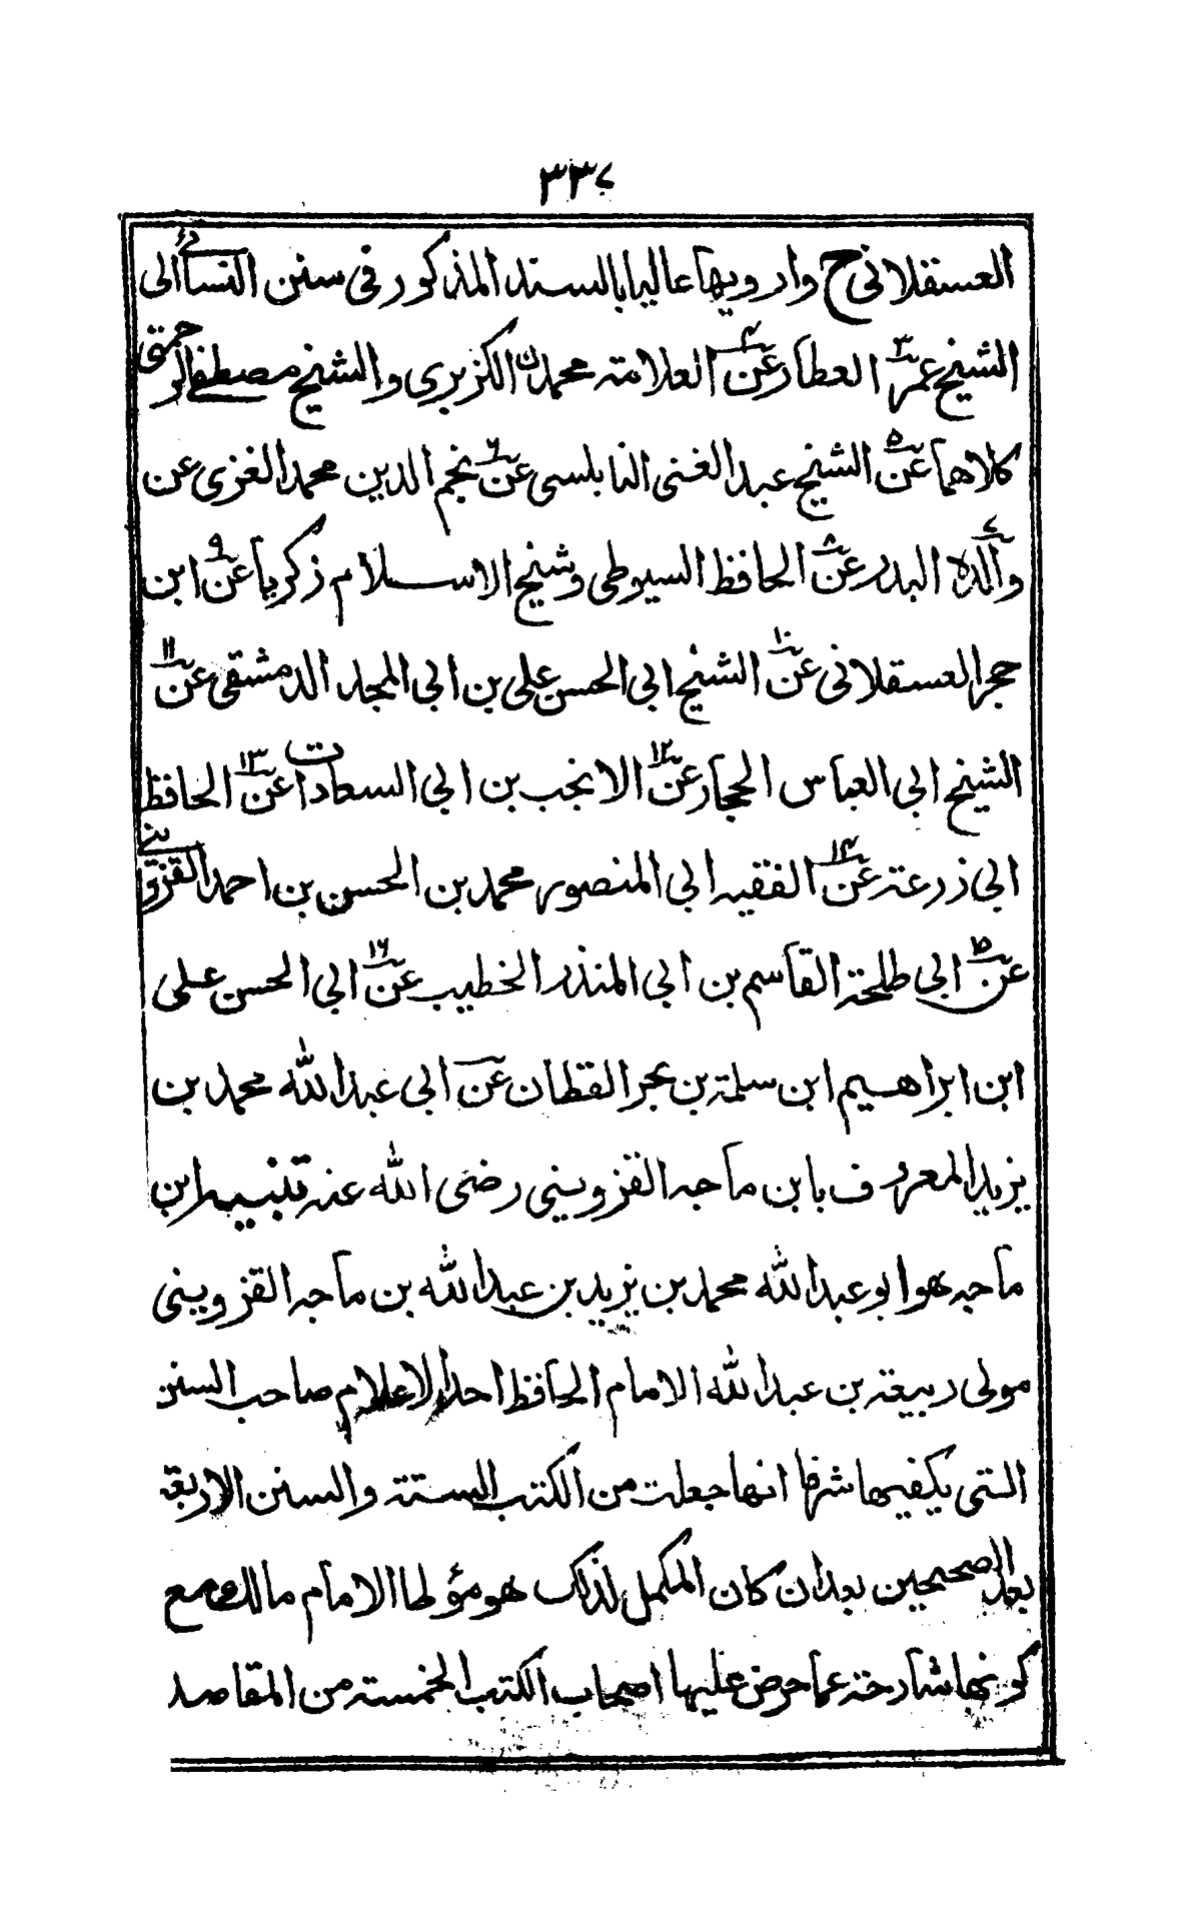 ٣٣٧
العسقلانی ح وارويها عاليا بالسند المذكور فی سنن النسائے الی
الشيخ عمر٣ العطار عن٤ العلامة محمدن الكزبری والشيخ مصطفے الرحمتی
كلاهما عن٥ الشيخ عبد الغنی النابلسی عن٦ نجم الدين محمد الغزی عن
والده٧ البدر عن٨ الحافظ السيوطی وشيخ الاسلام زكريا عن٩ ابن
حجر العسقلانی عن١٠ الشيخ ابی الحسن علی بن ابی المجد الدمشقی عن١١
الشيخ ابی العباس الحجار عن١٢ الانجب بن ابی السعادات عن١٣ الحافظ
ابی زرعة عن١٤ الفقيه ابی المنصور محمد بن الحسن بن احمد القزوينے
عن١٥ ابی طلحة القاسم بن ابی المنذر الخطيب عن١٦ ابی الحسن علی
ابن ابراهيم ابن سلمة بن بحر القطان عن ابی عبد الله محمد بن
يزيد المعروف بابن ماجه القزوينی رضی الله عنه تنبيه ابن
ماجه هو ابو عبد الله محمد بن يزيد بن عبد الله بن ماجه القزوينی
مولی ربيعة بن عبد الله الامام الحافظ احد الاعلام صاحب السنن
التی يكفيها شرفا انها جعلت من الكتب الستة والسنن الاربعة
بعد الصحيحين بعد ان كان المكمل لذلك هو مؤطا الامام مالك مع
كونها شارحة عما حرض عليها اصحاب الكتب الخمسة من المقاصد